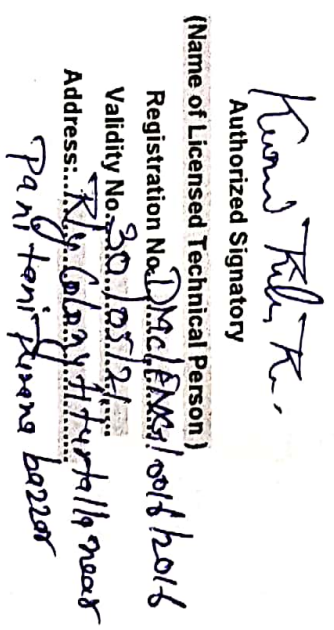 Authorized Signatory
(Name of Licensed Technical Person)
Registration No. DMC/ENG/0016/2016
Validity No. 30/05/21
Address: Rly Colony near
Pani tani Purana bazzar